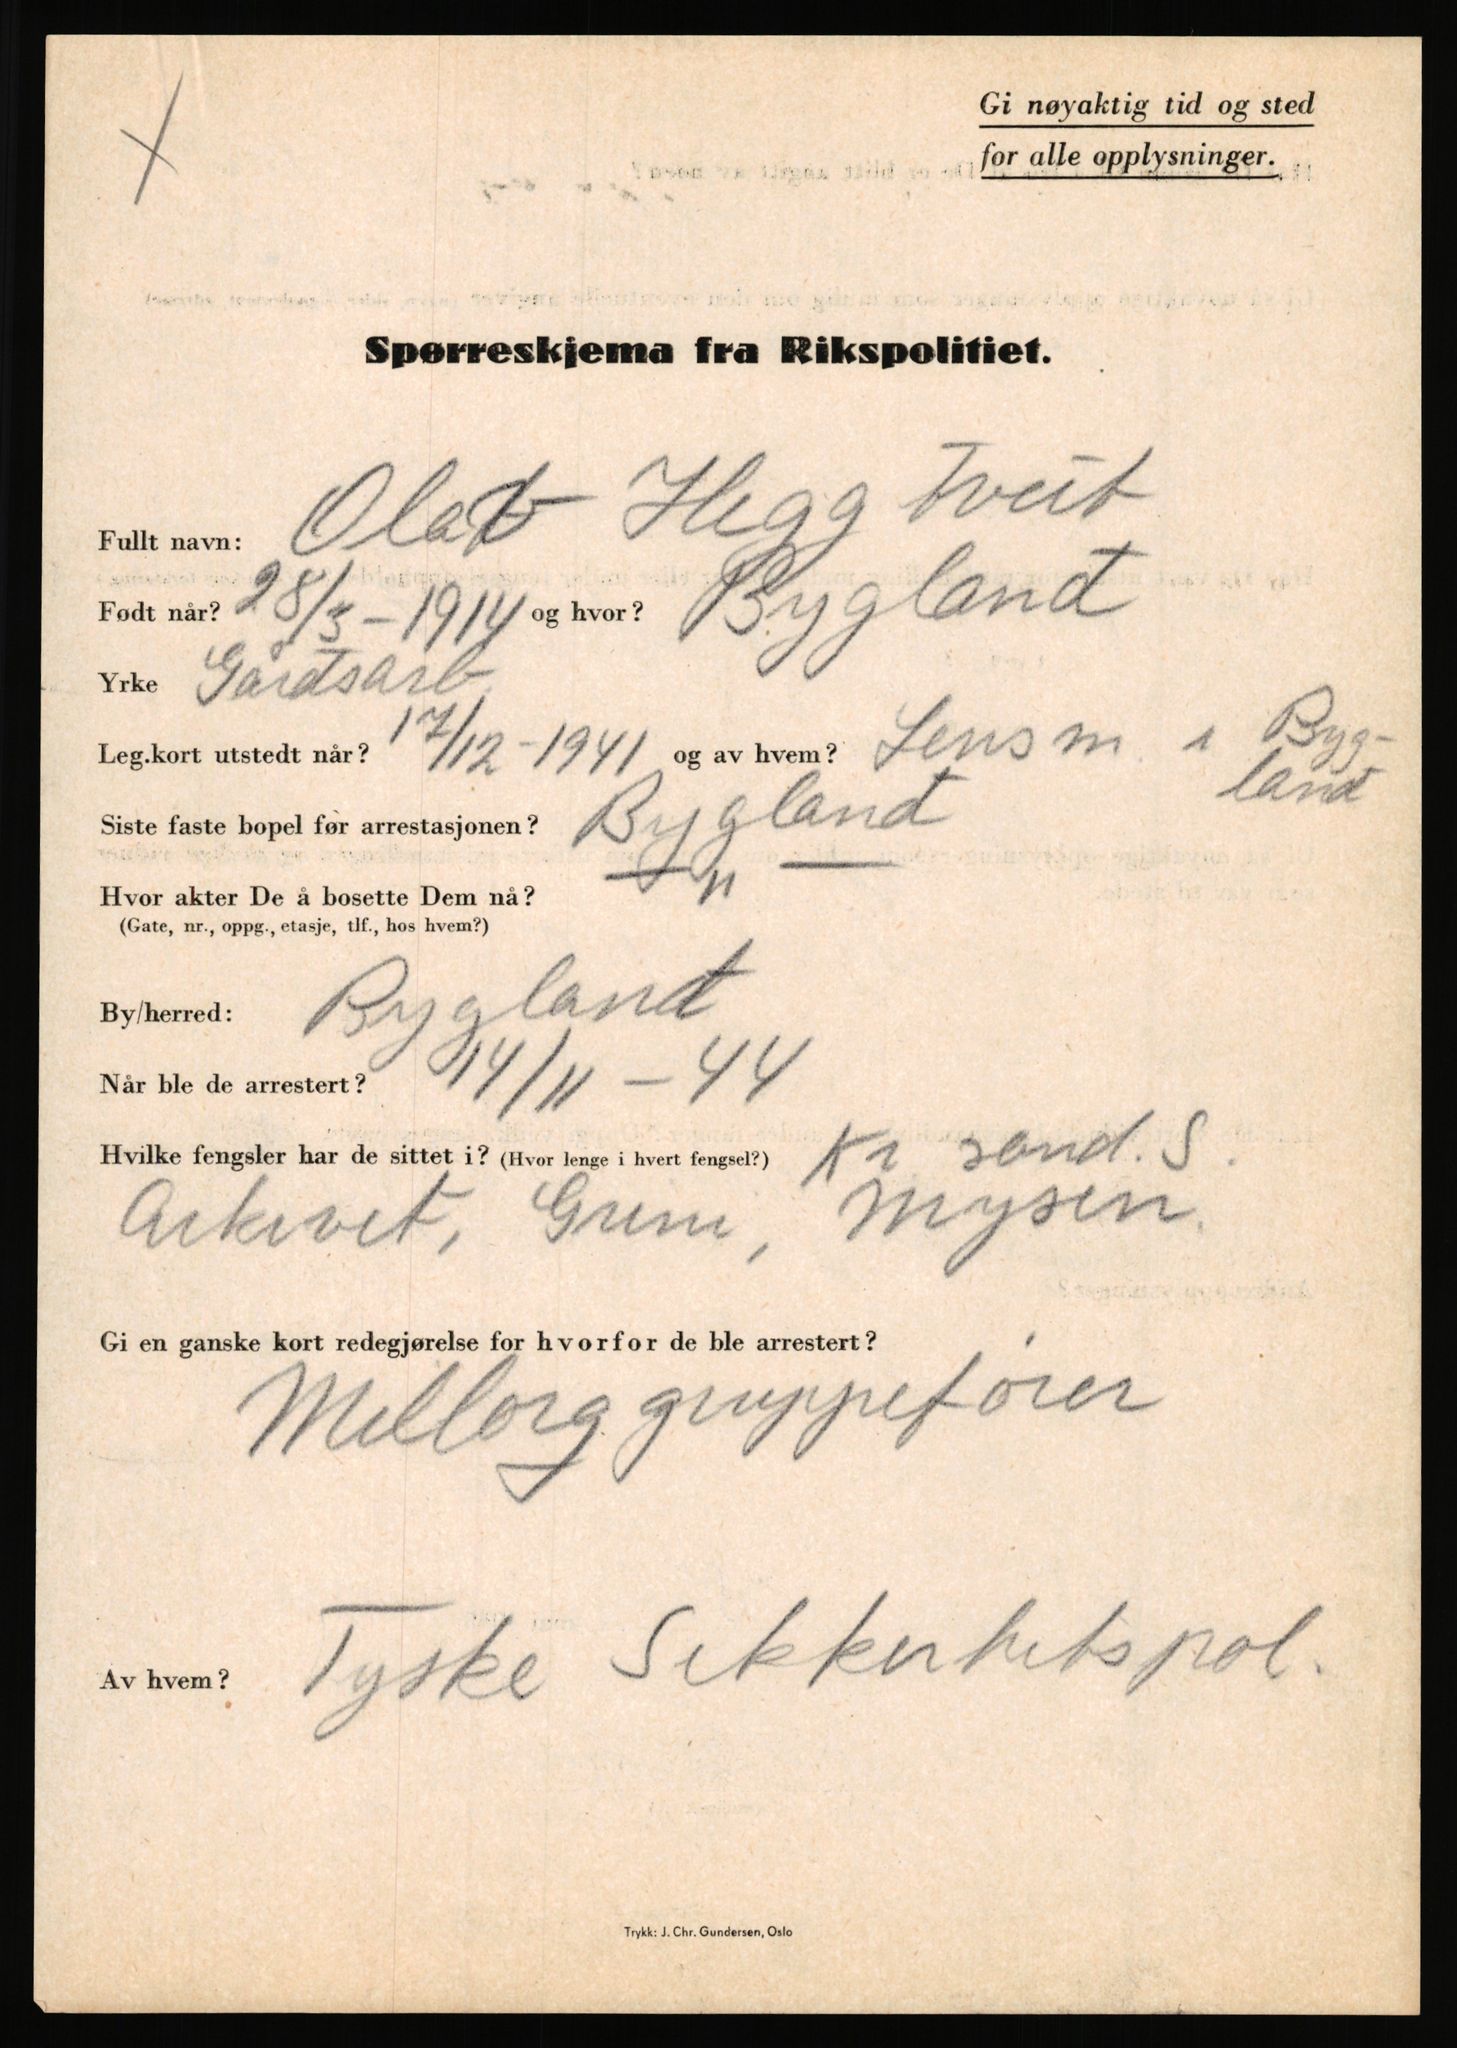 Gi nøyaktig tid og sted
for alle opplysninger.
Spørreskjema fra Rikspolitiet.
Fullt navn: Olav Heggtveit
Født når? 28/3-1914 og hvor? Bygland
Yrke Gårdsarb.
Leg.kort utstedt når? 17/12-1941 og av hvem? Lensm. i Byg-
land
Siste faste bopel før arrestasjonen? Bygland
Hvor akter De å bosette Dem nå? "
(Gate, nr., oppg., etasje, tlf., hos hvem?)
By/herred: Bygland
Når ble de arrestert? 14/11-44
Hvilke fengsler har de sittet i? (Hvor lenge i hvert fengsel?) Kr sand. S.
Arkivet, Grini, Mysen.
Gi en ganske kort redegjørelse for hvorfor de ble arrestert?
Millorg gruppefører
Av hvem? Tyske Sikkerhetspol.
Trykk: J. Chr. Gundersen, Oslo